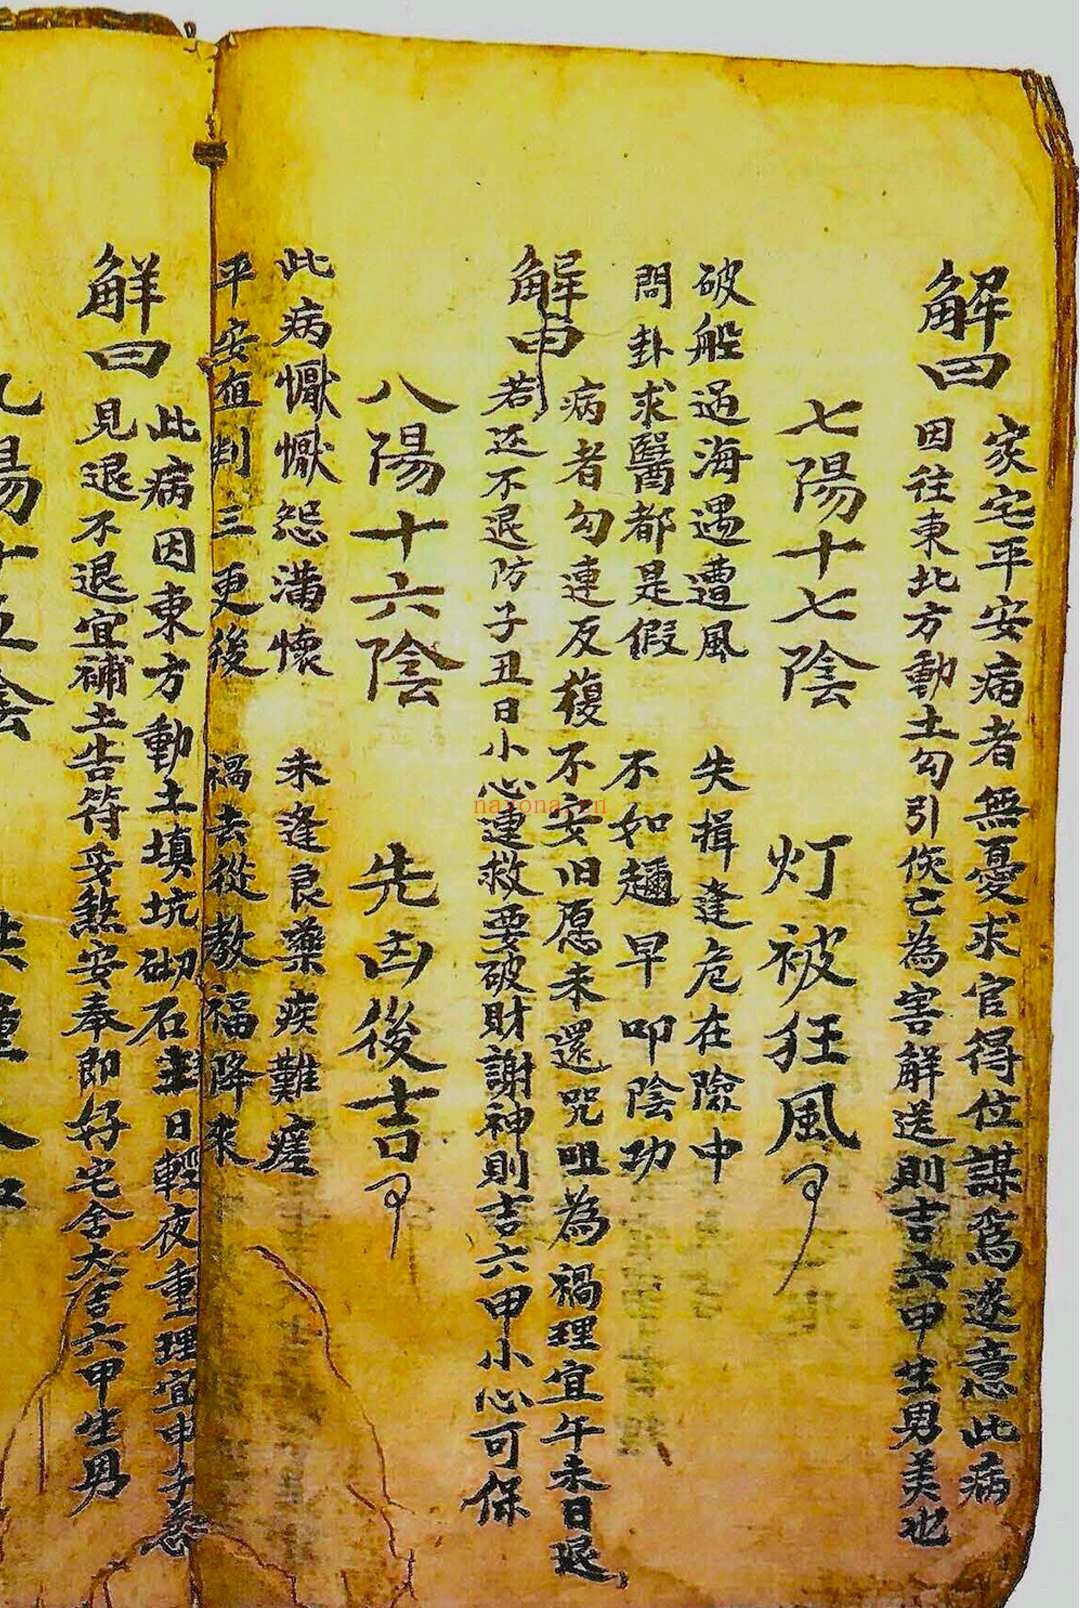 解曰
家宅平安病者無憂求官得位謀為遂意此病
因往東北方動土勾引傷亡為害解送則吉六甲生男美也
七陽十七陰 灯被狂風
破船過海遇遭風 失揖逢危在險中
問卦求醫都是假 不如趲早叩陰功
解曰
病者勾連反覆不安旧愿未還咒咀為禍理宜午未日退
若还不退防子丑日小心連救要破財謝神則吉六甲小心可保
八陽十六陰 先凶後吉
此病懨懨怨滿懷 未逢良藥疾難瘥
平安值判三更後 禍去從教福降来
解曰
此病因東方動土填坑砌石主日輕夜重理宜申子
見退不退宜補土告符妥煞安奉即好宅舍大吉六甲生男
九陽十五陰
nayona.cn